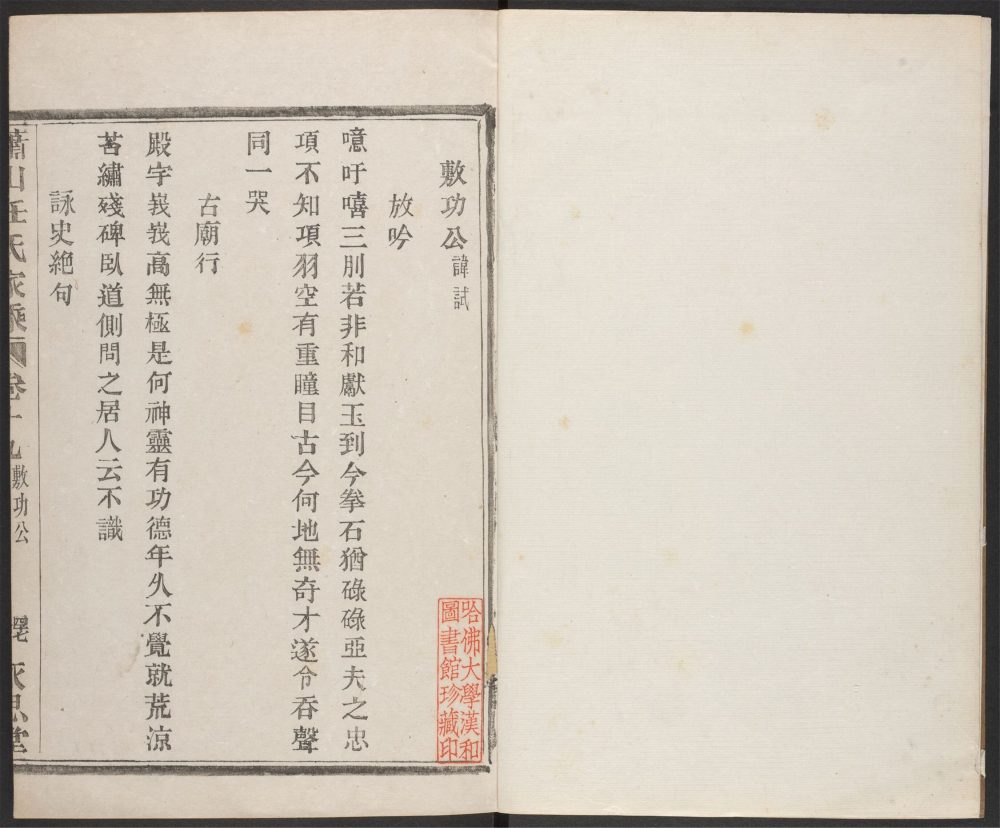 敷功公諱試
放吟
噫吁嘻三刖若非和獻玉到今拳石猶碌碌亞夫之忠
項不知項羽空有重瞳目古今何地無奇才遂令吞聲
同一哭
古廟行
殿宇峩峩高無極是何神靈有功德年久不覺就荒凉
苔繡殘碑臥道側問之居人云不識
詠史絕句
蕭山任氏家乘 卷十九 敷功公 永思堂
哈佛大學漢和
圖書館珍藏印